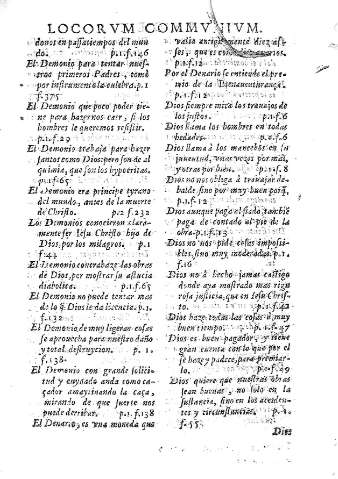 LOCORVM COMMVNIVM.
donos en passatiempos del mun
do. p.1.f.146
El Demonio para tentar nues-
tros primeros Padres, tomò
por instrumento la culebra. p.1
f.375
El Demonio que poco poder tie-
ne para hazernos caer, si los
hombres le queremos resistir.
p.1.f.29
El Demonio trabaja para hazer
santos como Dios: pero son de al
quimia, que son los hypocritas.
p.1.f.65
El Demonio era principe tyrano
del mundo, antes de la muerte
de Christo. p.2.f.232
Los Demonios conocieron clara-
mente ser Iesu Christo hijo de
Dios, por los milagros. p.1
f.44
El Demonio contrahaze las obras
de Dios, por mostrar su astucia
diabolica. p.1.f.65
El Demonio no puede tentar mas
de lo q̃ Dios le da licencia. p.1.
f.132
El Demonio de muy ligeras cosas
se aprovecha para nuestro daño
y total destruycion. p.1.
f.138
El Demonio con grande solici-
tud y cuydado anda como ca-
çador amayinando la caça,
mirando de que suerte nos
puede derribar. p.1.f.138
El Denario, es una moneda que
valia antiguamente diez as-
ses, que es
p.1.f.12
Por el Denario se entiende el pre-
mio de la Bienaventurança.
p.1.f.12
Dios siempre mira los trabajos de
los justos. p.1.f.6
Dios llama los hombres en todas
hedades. p.1.f.6
Dios llama à los mancebos en la
juventud, unas vezes por mal,
y otras por bien. p.1.f.8
Dios no nos obliga à trabajar de
balde sino por muy buen precio,
p.1.f.12
Dios aunque paga el fiado, tambiẽ
paga de contado al pie de la
obra. p.1.f.13
Dios no nos pide cosas impossi-
bles, sino muy moderadas. p.1.
f.16
Dios no à hecho jamas castigo
donde aya mostrado mas rigu
rosa justicia, que en Iesu Chris-
to. p.1.f.43
Dios haze todas las cosas à muy
buen tiempo. p.1.f.47
Dios es buen pagador, y tiene
gran cuenta con lo que por el
se haze y padece, para premiar-
lo. p.1.f.49
Dios quiere que nuestras obras
sean buenas, no solo en la
sustancia, sino en los acciden-
tes y circunstancias. p.1.
f.55
Dios